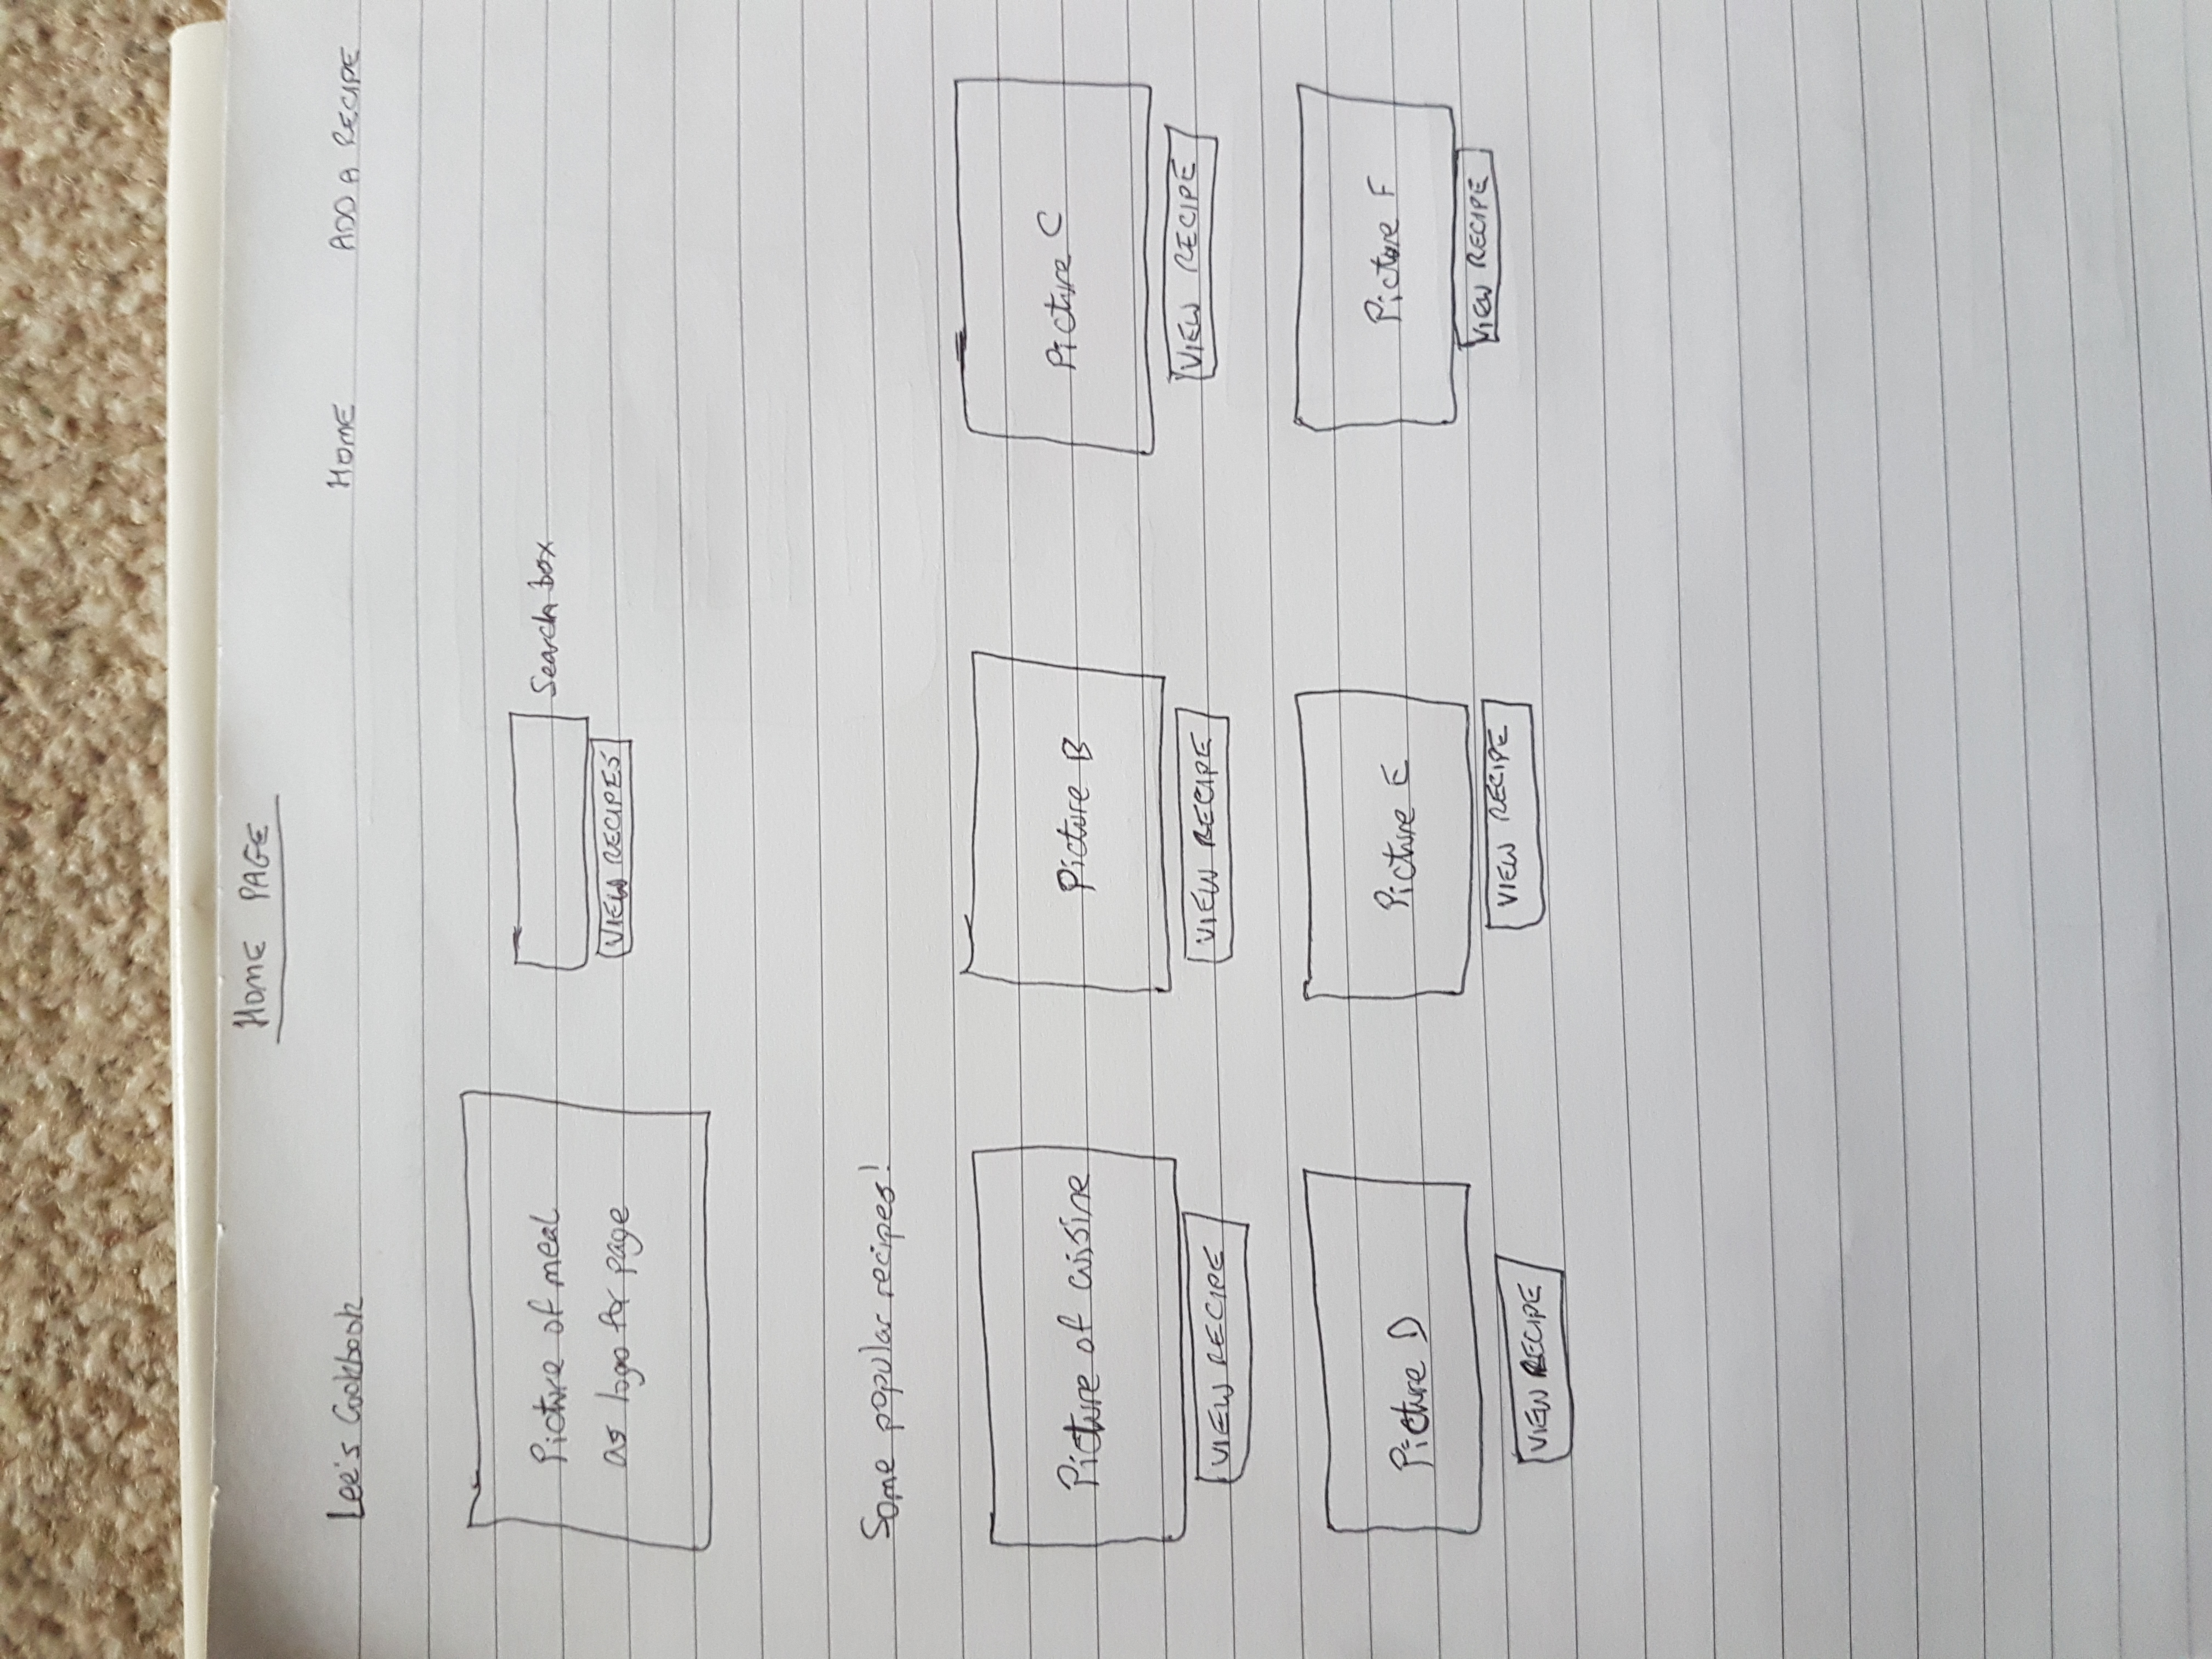 HOME PAGE
Lee's Cookbook HOME ADD A RECIPE
Picture of meal
as logo for page
Search box
VIEW RECIPES
Some popular recipes!
Picture of cuisine Picture B Picture C
VIEW RECIPE VIEW RECIPE VIEW RECIPE
Picture D Picture E Picture F
VIEW RECIPE VIEW RECIPE VIEW RECIPE